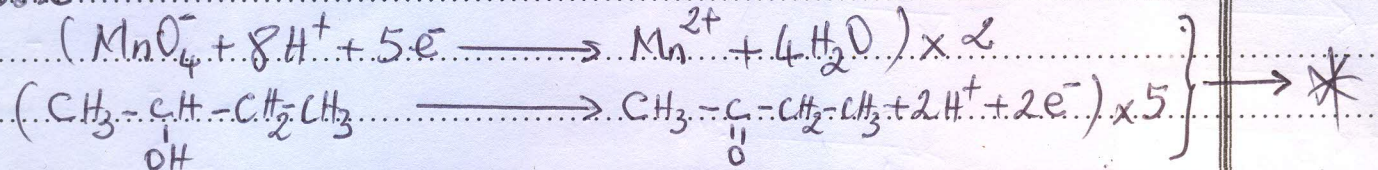 (MnO₄⁻ + 8H⁺ + 5e⁻ ⟶ Mn²⁺ + 4H₂O) × 2
(CH₃-CH-CH₂-CH₃ ⟶ CH₃-C-CH₂-CH₃ + 2H⁺ + 2e⁻) × 5 } → *
OH O